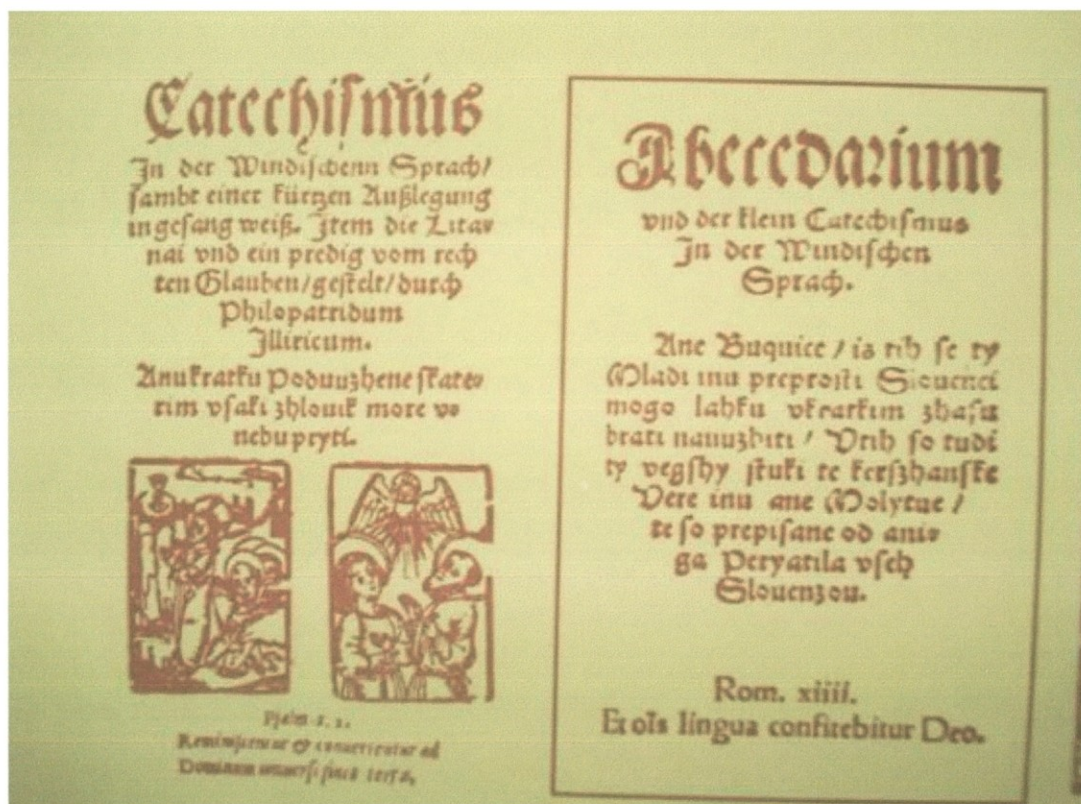 Catechismus
In der Windischenn Sprach/
sambt einer kürtzen Außlegung
in gesang weiß. Item die Litas
nai vnd ein predig vom rech
ten Glauben/gestelt/durch
Philopatridum
Illiricum.
Anu kratku Poduuzhene skates
rim vsaki zhlouik more vo
nebu pryti.
Reminiscentur & conuertentur ad
Dominum vniuersi fines terræ,
Abecedarium
vnd der klein Catechismus
In der Windischen
Sprach.
Ane Buquice/is tih se ty
Mladi inu preprosti Slouenci
mogo lahku vkratkim zhasu
brati nauuzhiti/Vtih so tudi
ty vegshy stuki te kerszhanske
Vere inu ane Molytue/
te so prepisane od anis
ga Peryatila vseh
Slouenzou.
Rom. xiiii.
Et oīs lingua confitebitur Deo.